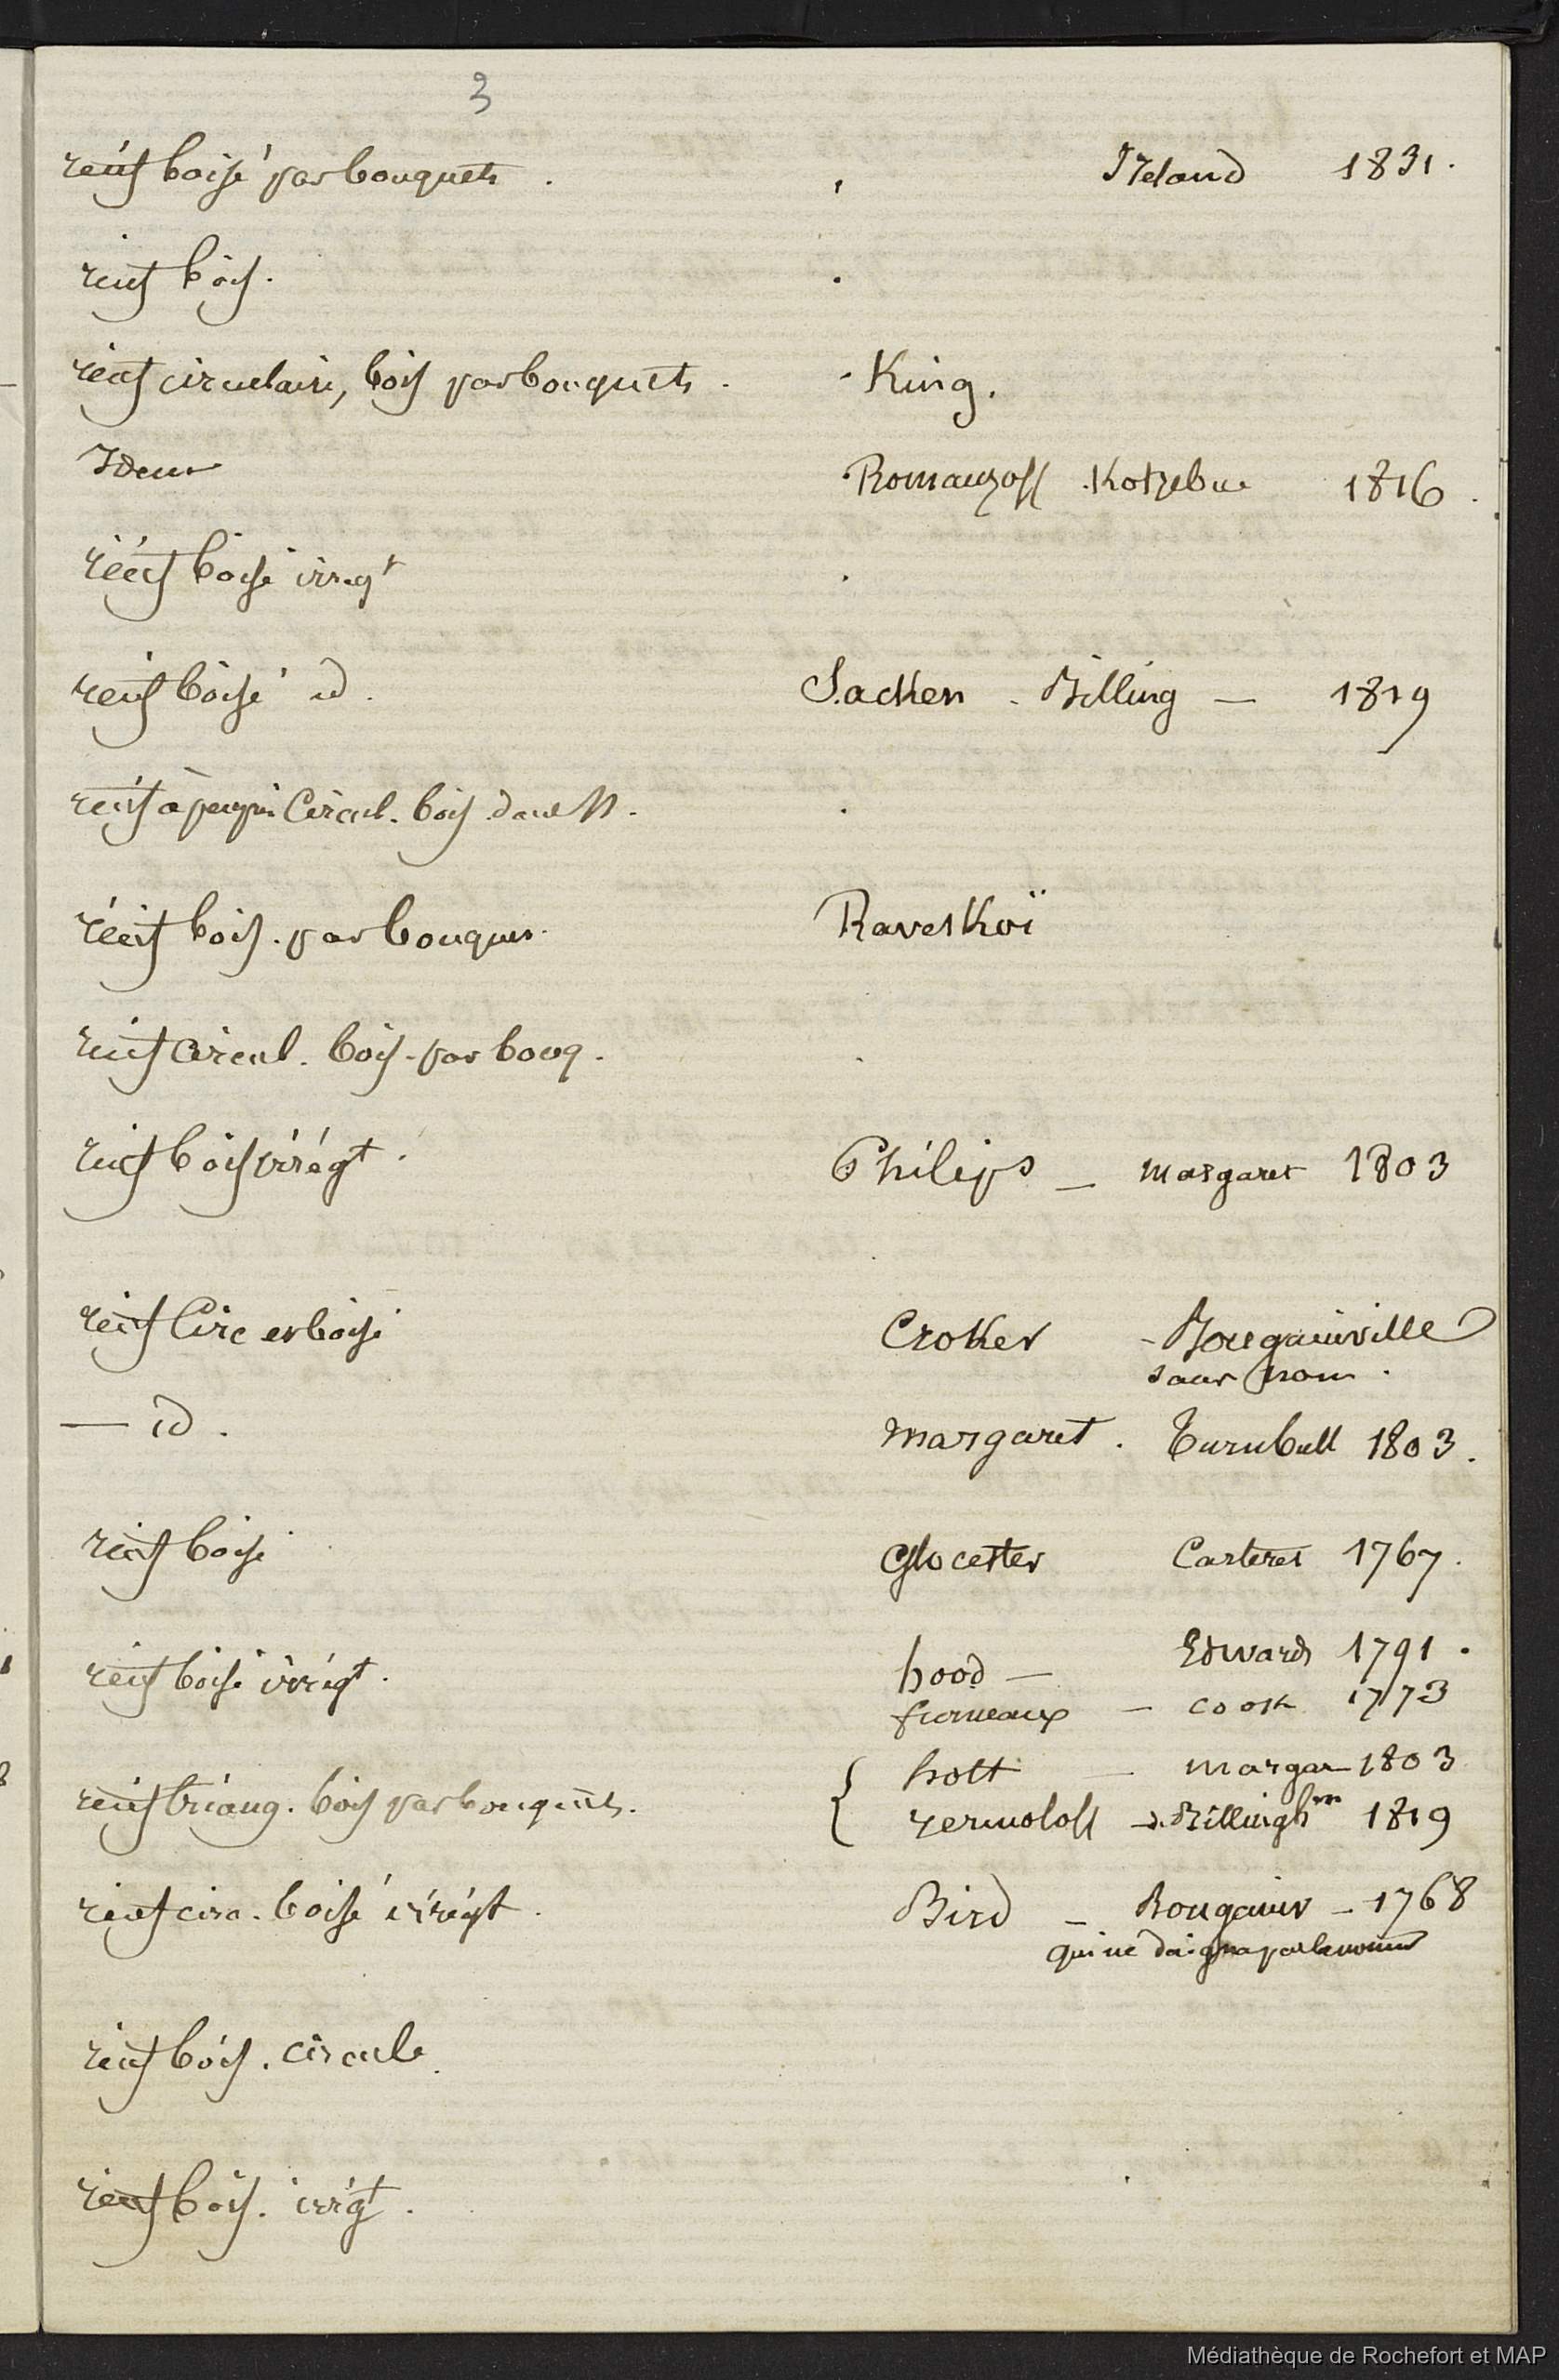 3
récif boisé par bouquets . Ireland 1831.
récif bois.
récif circulaire, bois par bouquets . King.
Idem Romanzoff . Kotzebue 1816 .
récif boisé irrégt
récif boisé id. Sacken . Billing — 1819
récif à peu près Circul. bois. dans N.
récif bois. par bouques. Raveskoï
récif circul. bois. par bouq.
récif bois irrégt. Philips — margaret 1803
récif Circ et boisé Croker - Bougainville
sans nom .
— id . margaret . Turnbull 1803 .
récif boisé Glocester Carteret 1767.
récif boisé irrégt. hood — Edwards 1791 .
furneaux — cook 1773
holt — margar 1803
récif triang. bois par bouquets. yermoloff -. Billingh 1819
récif circ. boisé irrégt. Bird - Bougainv - 1768
qui ne daigna pas la nommer
récif bois. circule.
récif bois. irrégt.
Médiathèque de Rochefort et MAP